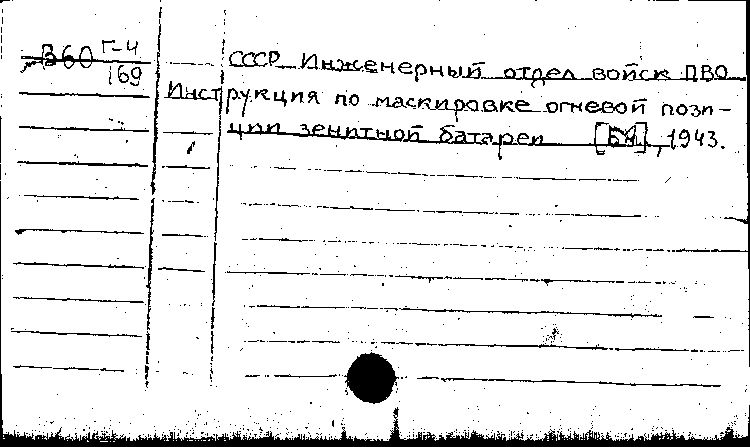 В60 Г-4
169
СССР. Инженерный отдел войск ПВО
Инструкция по маскировке огневой пози-
ции зенитной батареи [БМ], 1943.